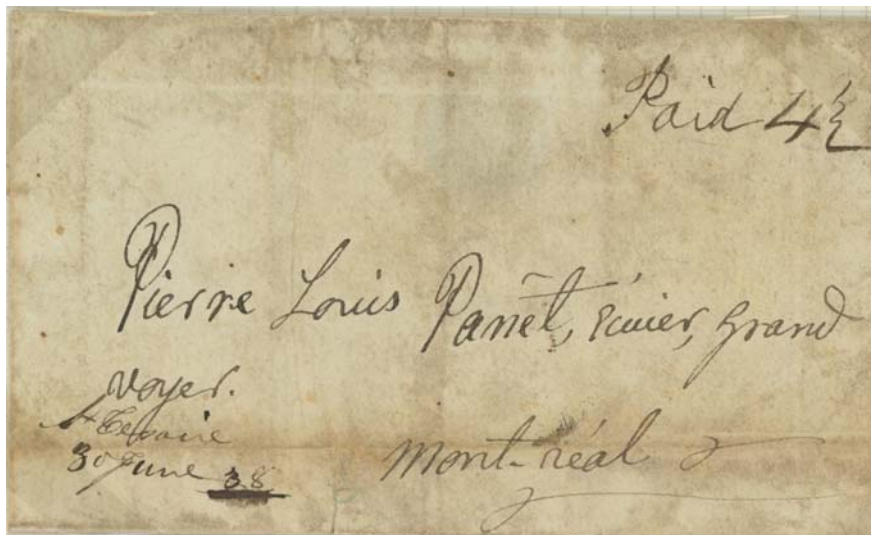 Paid 4½
Pierre Louis Panet, Ecuier, Grand
voyer.
30 June 38
Mont-réal